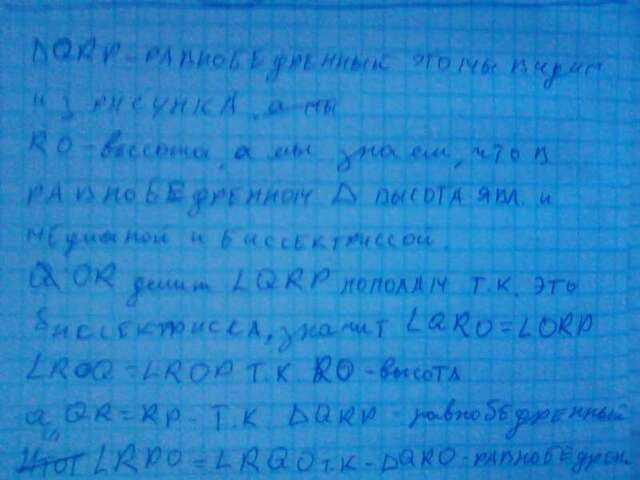 ΔQRP - РАВНОБЕДРЕННЫЙ это мы видим
из рисунка, а мы
RO - высота, а мы знаем, что в
РАВНОБЕДРЕННОМ Δ ВЫСОТА ЯВЛ. и
медианой и биссектриссой.
OR делит ∠QRP пополам т.к. это
биссектрисса, значит ∠QRO = ∠ORP
∠ROQ = ∠ROP т.к. RO - высота
а QR = RP - т.к. ΔQRP - равнобедренный
∠RPO = ∠RQO т.к - ΔQRO - равнобедрен.